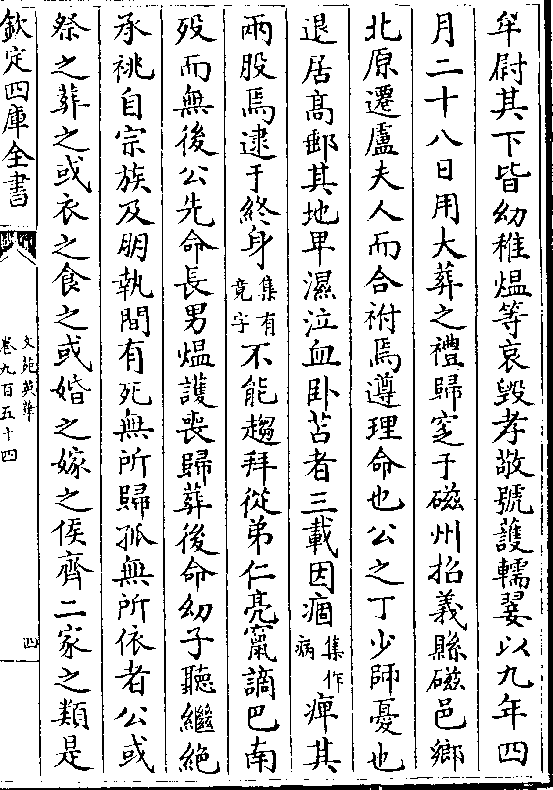 牟尉其下皆幼稚煴等哀毀孝敬號護轜翣以九年四
月二十八日用大葬之禮歸窆于磁州招義縣磁邑鄉
北原遷盧夫人而合祔焉遵理命也公之丁少師憂也
退居髙郵其地卑濕泣血卧苫者三載因痼集作病痺其
兩股焉逮于終身集有竟字不能趨拜從弟仁亮竄謫巴南
歿而無後公先命長男煴護喪歸葬後命幼子聽繼絶
承祧自宗族及朋執間有死無所歸孤無所依者公或
祭之葬之或衣之食之或婚之嫁之侯齊二家之類是
欽定四庫全書
文苑英華
卷九百五十四
四